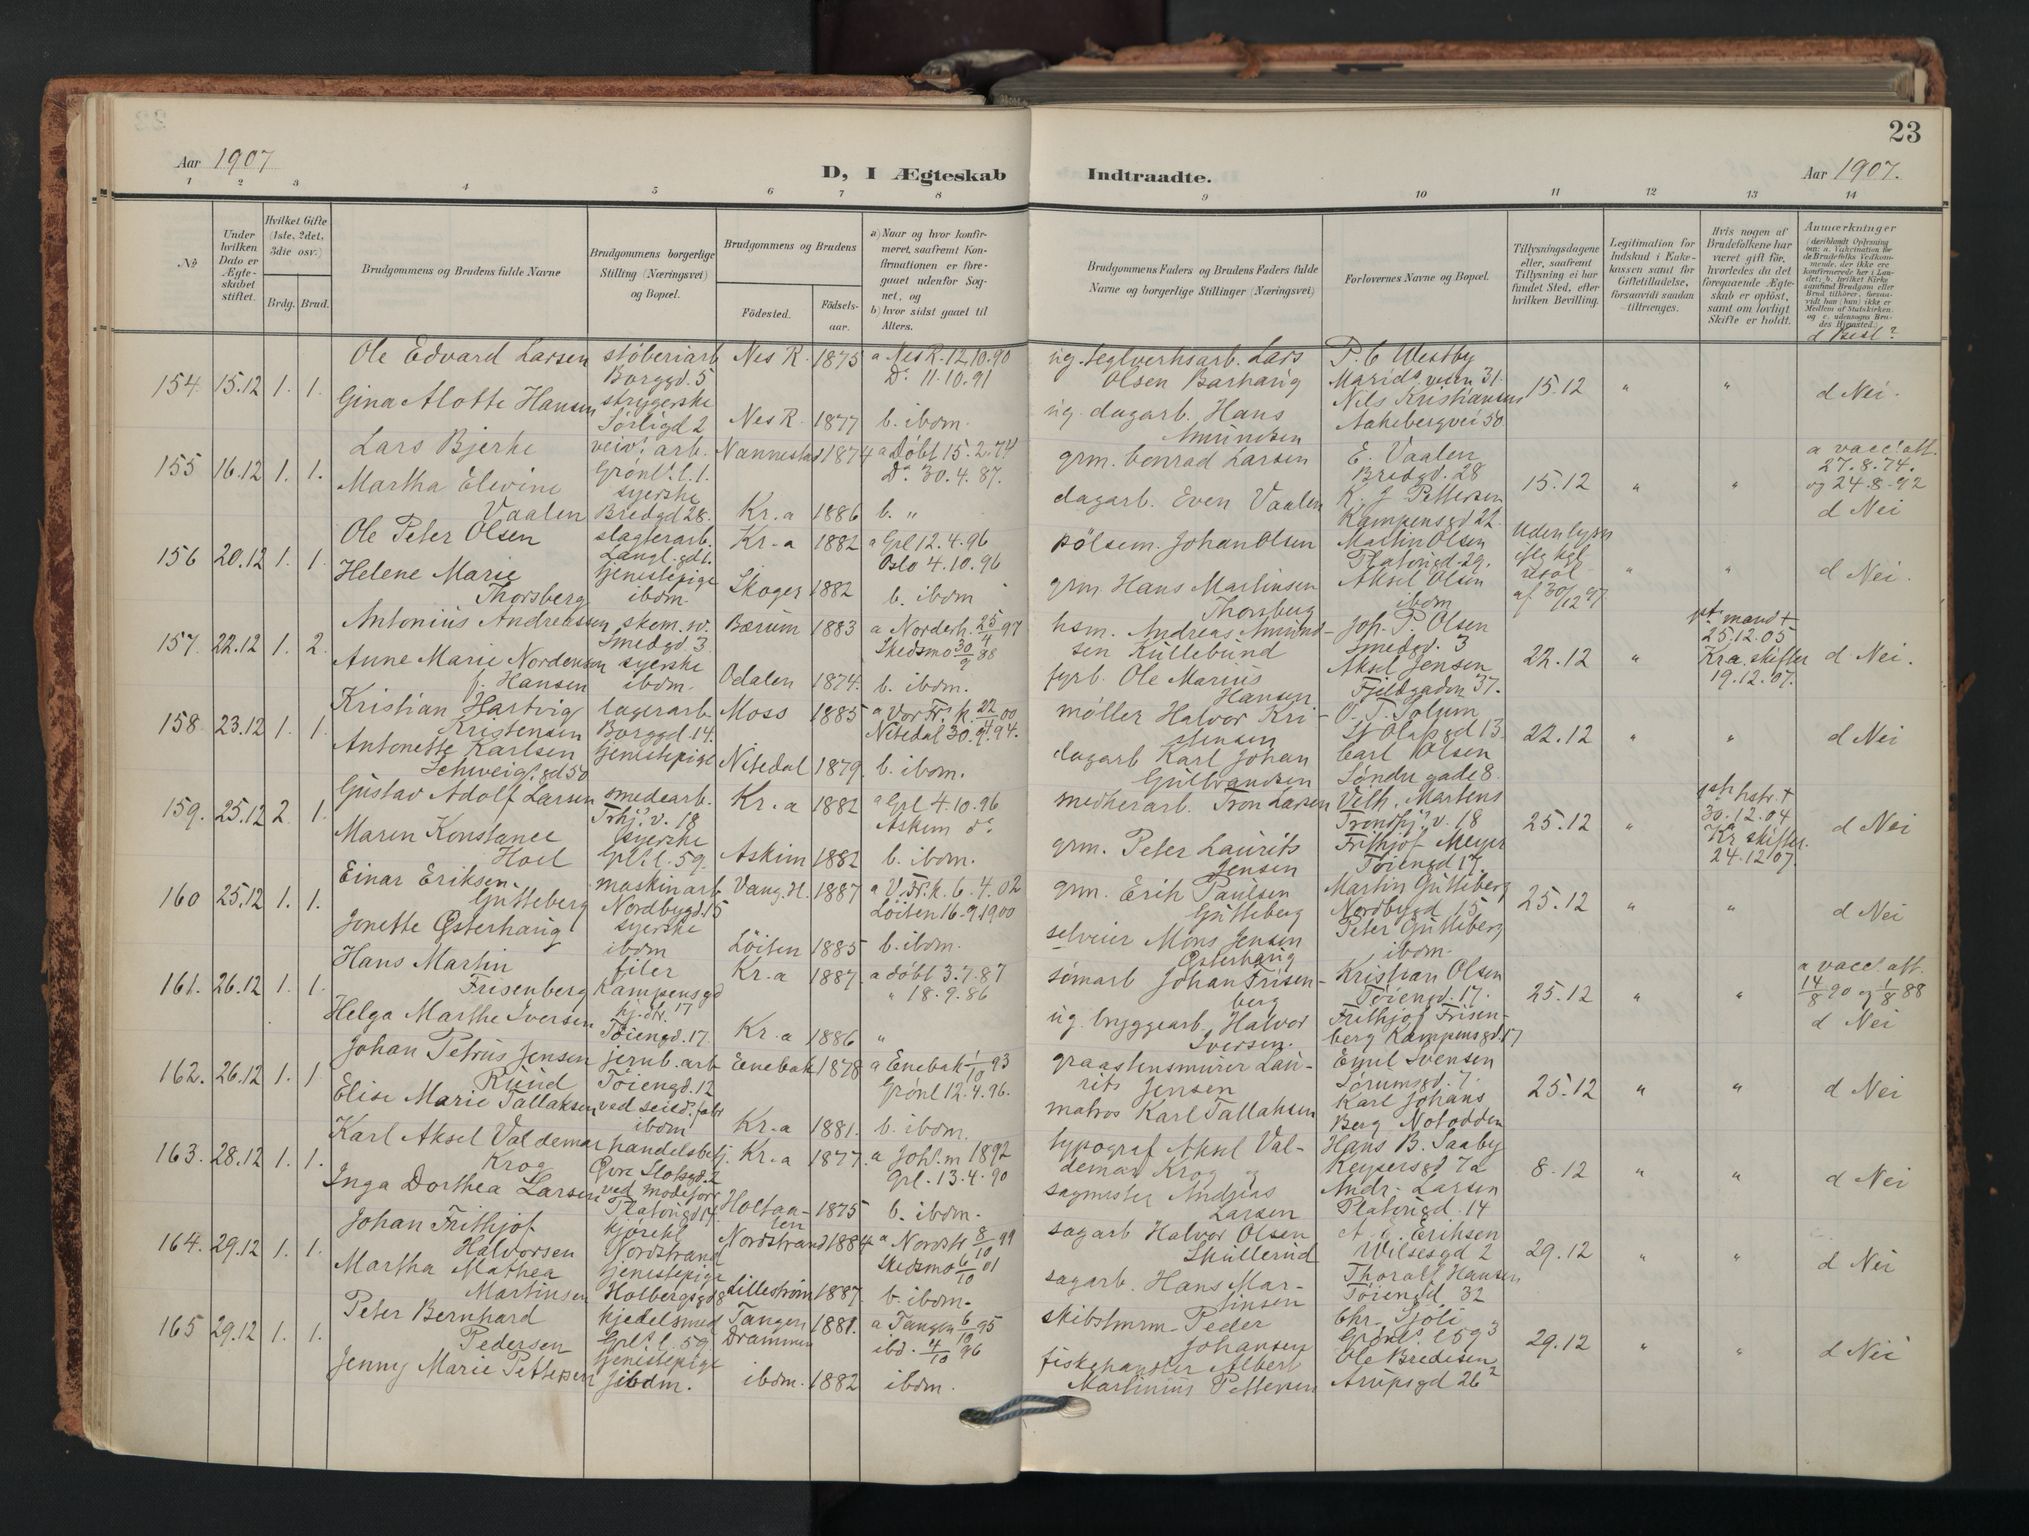 23
Aar 1907
D, I Ægteskab
Indtraadte.
Aar 1907.
1 2 3 4 5 6 7 8 9 10 11 12 13 14
No
Under hvilken Dato er Ægteskabet stiftet.
Hvilket Gifte (1ste, 2det, 3die osv.)
Brdg. Brud.
Brudgommens og Brudens fulde Navne
Brudgommens borgerlige Stilling (Næringsvei) og Bopæl.
Brudgommens og Brudens
Fødested. Fødselsaar.
a) Naar og hvor konfirmeret, saafremt Konfirmationen er foregaaet udenfor Sognet, og
b) hvor sidst gaaet til Alters.
Brudgommens Faders og Brudens Faders fulde Navne og borgerlige Stillinger (Næringsvei)
Forlovernes Navne og Bopæl.
Tillysningsdagene eller, saafremt Tillysning ei har fundet Sted, efter hvilken Bevilling.
Legitimation for Indskud i Enkekassen samt for Giftetilladelse, forsaavidt saadan tiltrænges.
Hvis nogen af Brudefolkene har været gift før, hvorledes da det foregaaende Ægteskab er opløst, samt om lovligt Skifte er holdt.
Anmerkninger
(deriblandt Oplysning om: a. Vakcination for de Brudefolks Vedkommende, der ikke ere konfirmerede her i Landet, b. hvilket Kirkesamfund Brudgom eller Brud tilhører, forsaavidt han (hun) ikke er Medlem af Statskirken, og c. udensogns Brudes Hjemsted.)
d Besl?
154. 15.12 1. 1. Ole Edvard Larsen støberiarb Nes R. 1875 a Nes R. 12.10.90 ug. teglverksarb. Lars P. C Westby
Borggd. 5 Do 11.10.91 Olsen Barhaug Marids veien 31. 15.12 " " d Nei.
Gina Alotte Hansen strygerske Nils Kristiansen
Sørligd 2 Nes R. 1877 b. ibdm. ug. dagarb. Hans Amundsen Aakebergvei 50
155 16.12 1. 1. Lars Bjerke veiv. arb. Nannestad 1874 a Døbt 15.2.74 grm. Conrad Larsen E. Vaalen a vacc. att.
Grønl. l. 1. Do 30.4.87. Bredgd. 28 15.12 " " 27.8.74.
Martha Elevine syerske dagarb. Even Vaalen K. J Pettersen og 24.8.92
Vaalen Bredgd 28. Kr.a 1886 b. " Kampensgd 22. d Nei
156 20.12 1. 1. Ole Peter Olsen slagterarb. Kr.a 1882 a Grl 12.4.96 pølsem. Johan Olsen Martin Olsen Uden lysn
Langl. gd 1. Oslo 4.10.96 Platousgd. 29. iflg kgl
Helene Marie tjenestepige Skoger 1882 grm Hans Martinsen Aksel Olsen resol " " d Nei.
Thorsberg ibdm b. ibdm Thorsberg ibdm af 30/12 97
157. 22.12 1. 2. Antonius Andreassen skem.sv. Bærum 1883 a Norderh. 25/4 97 hsm. Andreas Amund- Joh. P. Olsen 1ste mand +
Smedgd. 3. Skedsmo 30/9 88 sen Kullebund Smedgd. 3 25.12.05
Anne Marie Nordensen syerske fyrb. Ole Marius Aksel Jensen 22.12 " Kra. skifter d Nei.
f. Hansen ibdm. Odalen 1874. b. ibdm. Hansen Fjeldgaden 37. 19.12.07.
158. 23.12 1. 1. Kristian Hartvig lagerarb Moss 1885 a Vor Fr. k. 22/4 00 møller Halvor Kri- O. T. Solum
Kristensen Borggd. 14. Nitedal 30.9.94. stensen St Olafsgd 13. 22.12 " " d Nei
Antonette Karlsen tjenestepige dagarb Karl Johan Carl Olsen
Schweigs. gd 50 Nitedal 1879. b. ibdm. Gulbrandsen Søndre gade 8.
159. 25.12 2. 1. Gustav Adolf Larsen smedearb. Kr.a 1882 a Grl 4.10.96 Tron Larsen Vilh. Martens 1ste hstr. +
Trhj. v. 18 Askim do Trondhj. v. 18 25.12 " 30.12.04 d Nei
Maren Konstance syerske grm. Peter Laurits Frithjof Meyer Kr skifter.
Hoel Grl. l. 59. Askim 1882 b. ibdm. Jensen Tøiengd 17. 24.12 07.
160 25.12 1. 1. Einar Eriksen. maskinarb Vang. H. 1887 a V. Fr. k. 6.4.02 grm. Erik Paulsen Martin Gutteberg
Gutteberg Nordbygd. 15 Løiten 16.9.1900 Gutteberg Nordbygd 15 25.12 " " d Nei
Jonette Østerhaug syerske selveier Mons Jensen Peter Gutteberg
ibdm Løiten 1885 b. ibdm. Østerhaug ibdm.
161. 26.12 1. 1. Hans Martin filer Kr.a 1887. a døbt 3.7.87 sømarb Johan Frisen- Kristian Olsen a vacc. att.
Frisenberg Kampensgd " 18.9.86 berg Tøiengd. 17. 25.12 " " 14/8 90 og 1/8 88
Helga Marthe Iversen 17 ug. bryggearb. Halvor Frithjof Frisen- d Nei
Tøiengd. 17. Kr.a 1886 " Iversen. berg Kampensgd. 17
162. 26.12 1. 1 Johan Petrus Jensen jernb. arb Eenebak 1878 a Enebak 1/10 93 graastensmurer Lau- Emil Svensen
Ruud Tøiengd. 12 Grønl 12.4.96. rits Jensen Sørumsgd. 7. 25.12 " " d Nei
Elise Marie Tallaksen matros Karl Tallaksen Karl Johans
ibdm Kr.a 1881. b. ibdm. Berg Notodden
163. 28.12 1. 1. Karl Aksel Valdemar handelsbetj. Kr.a 1877. a Joh. m 1892 typograf Aksel Val- Hans B. Saaby
Krog Øvre Slotsgd. 2 Grl. 13.4.90 demar Krog Keysersgd 7a 8.12 " " d Nei
Inga Dorthea Larsen ved modeforr sagmester Andreas Andr. Larsen
Platousgd 14. Holtaalen 1875 b. ibdm. Larsen Platousgd. 14
164. 29.12 1. 1. Johan Frithjof kjørek. Nordstrand 1884 a. Nordstr 8/10 99 sagarb Halvor Olsen A. G. Eriksen
Halvorsen Nordstrand Skedsmo 6/10 01 Skullerud Wilsesgd 2 29.12 " " d Nei
Martha Mathea tjenestepige sagarb. Hans Mar- Thoralf Hansen
Martinsen Holbergsgd 8 Lillestrøm 1887. b. ibdm. tinsen Tøiengd 32
165 29.12 1. 1. Peter Bernhard kjedelsmed Tangen 1881. a Tangen 6/10 95 skibstmrm. Peder Chr. Sjøli
Pedersen Grl. l. 59. Drammen ibd. 4/10 96 Johansen Grønl. l 59 3 29.12 " " d Nei
Jenny Marie Pettersen tjenestepige fiskehandler Albert Ole Bredesen
ibdm. ibdm. 1882 ibdm. Martinius Pettersen Arupsgd 26 2